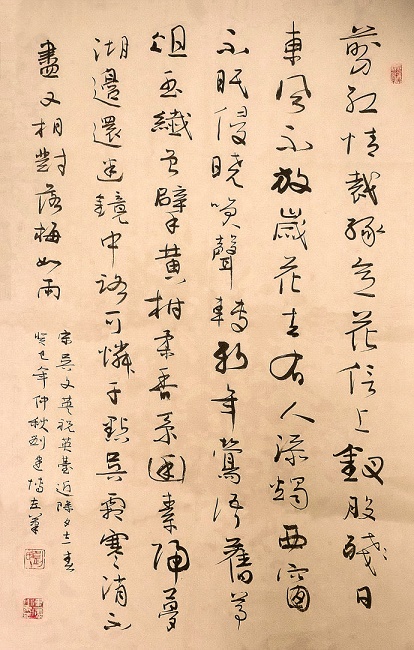 剪紅情裁綠意花信上釵股殘日
東風不放歲花去有人添燭西窗
不眠侵曉笑聲轉新年鶯語舊尊
俎玉纖曾擘黃柑柔香系幽素歸夢
湖邊還迷鏡中路可憐千點吳霜寒消不
盡又相對落梅如雨
宋吳文英祝英臺近除夕立春
癸巳年仲秋刘建橋左筆